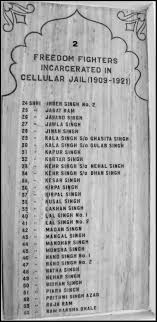 2
FREEDOM FIGHTERS
INCARCERATED IN
CELLULAR JAIL (1909-1921)
24 SHRI INDER SINGH No. 2
25 — JAGAT RAM
26 — JAWAND SINGH
27 — JAWALA SINGH
28 — JIWAN SINGH
29 — KALA SINGH S/o GHASITA SINGH
30 — KALA SINGH S/o GULAB SINGH
31 — KAPUR SINGH
32 — KARTAR SINGH
33 — KEHR SINGH S/o NEHAL SINGH
34 — KEHR SINGH S/o BHAN SINGH
35 — KESAR SINGH
36 — KIRPA SINGH
37 — KIRPAL SINGH
38 — KUSAL SINGH
39 — LAKHAN SINGH
40 — LAL SINGH No. 1
41 — LAL SINGH No. 2
42 — MADAN SINGH
43 — MANGAL SINGH
44 — MANOHAR SINGH
45 — MONSHA SINGH
46 — NAND SINGH No. 1
47 — NAND SINGH No. 2
48 — NATHA SINGH
49 — NEHAR SINGH
50 — SINGH
51 — PIARA SINGH
52 — PRITHVI SINGH AZAD
53 — RAM
54 — RAM RAKSHA